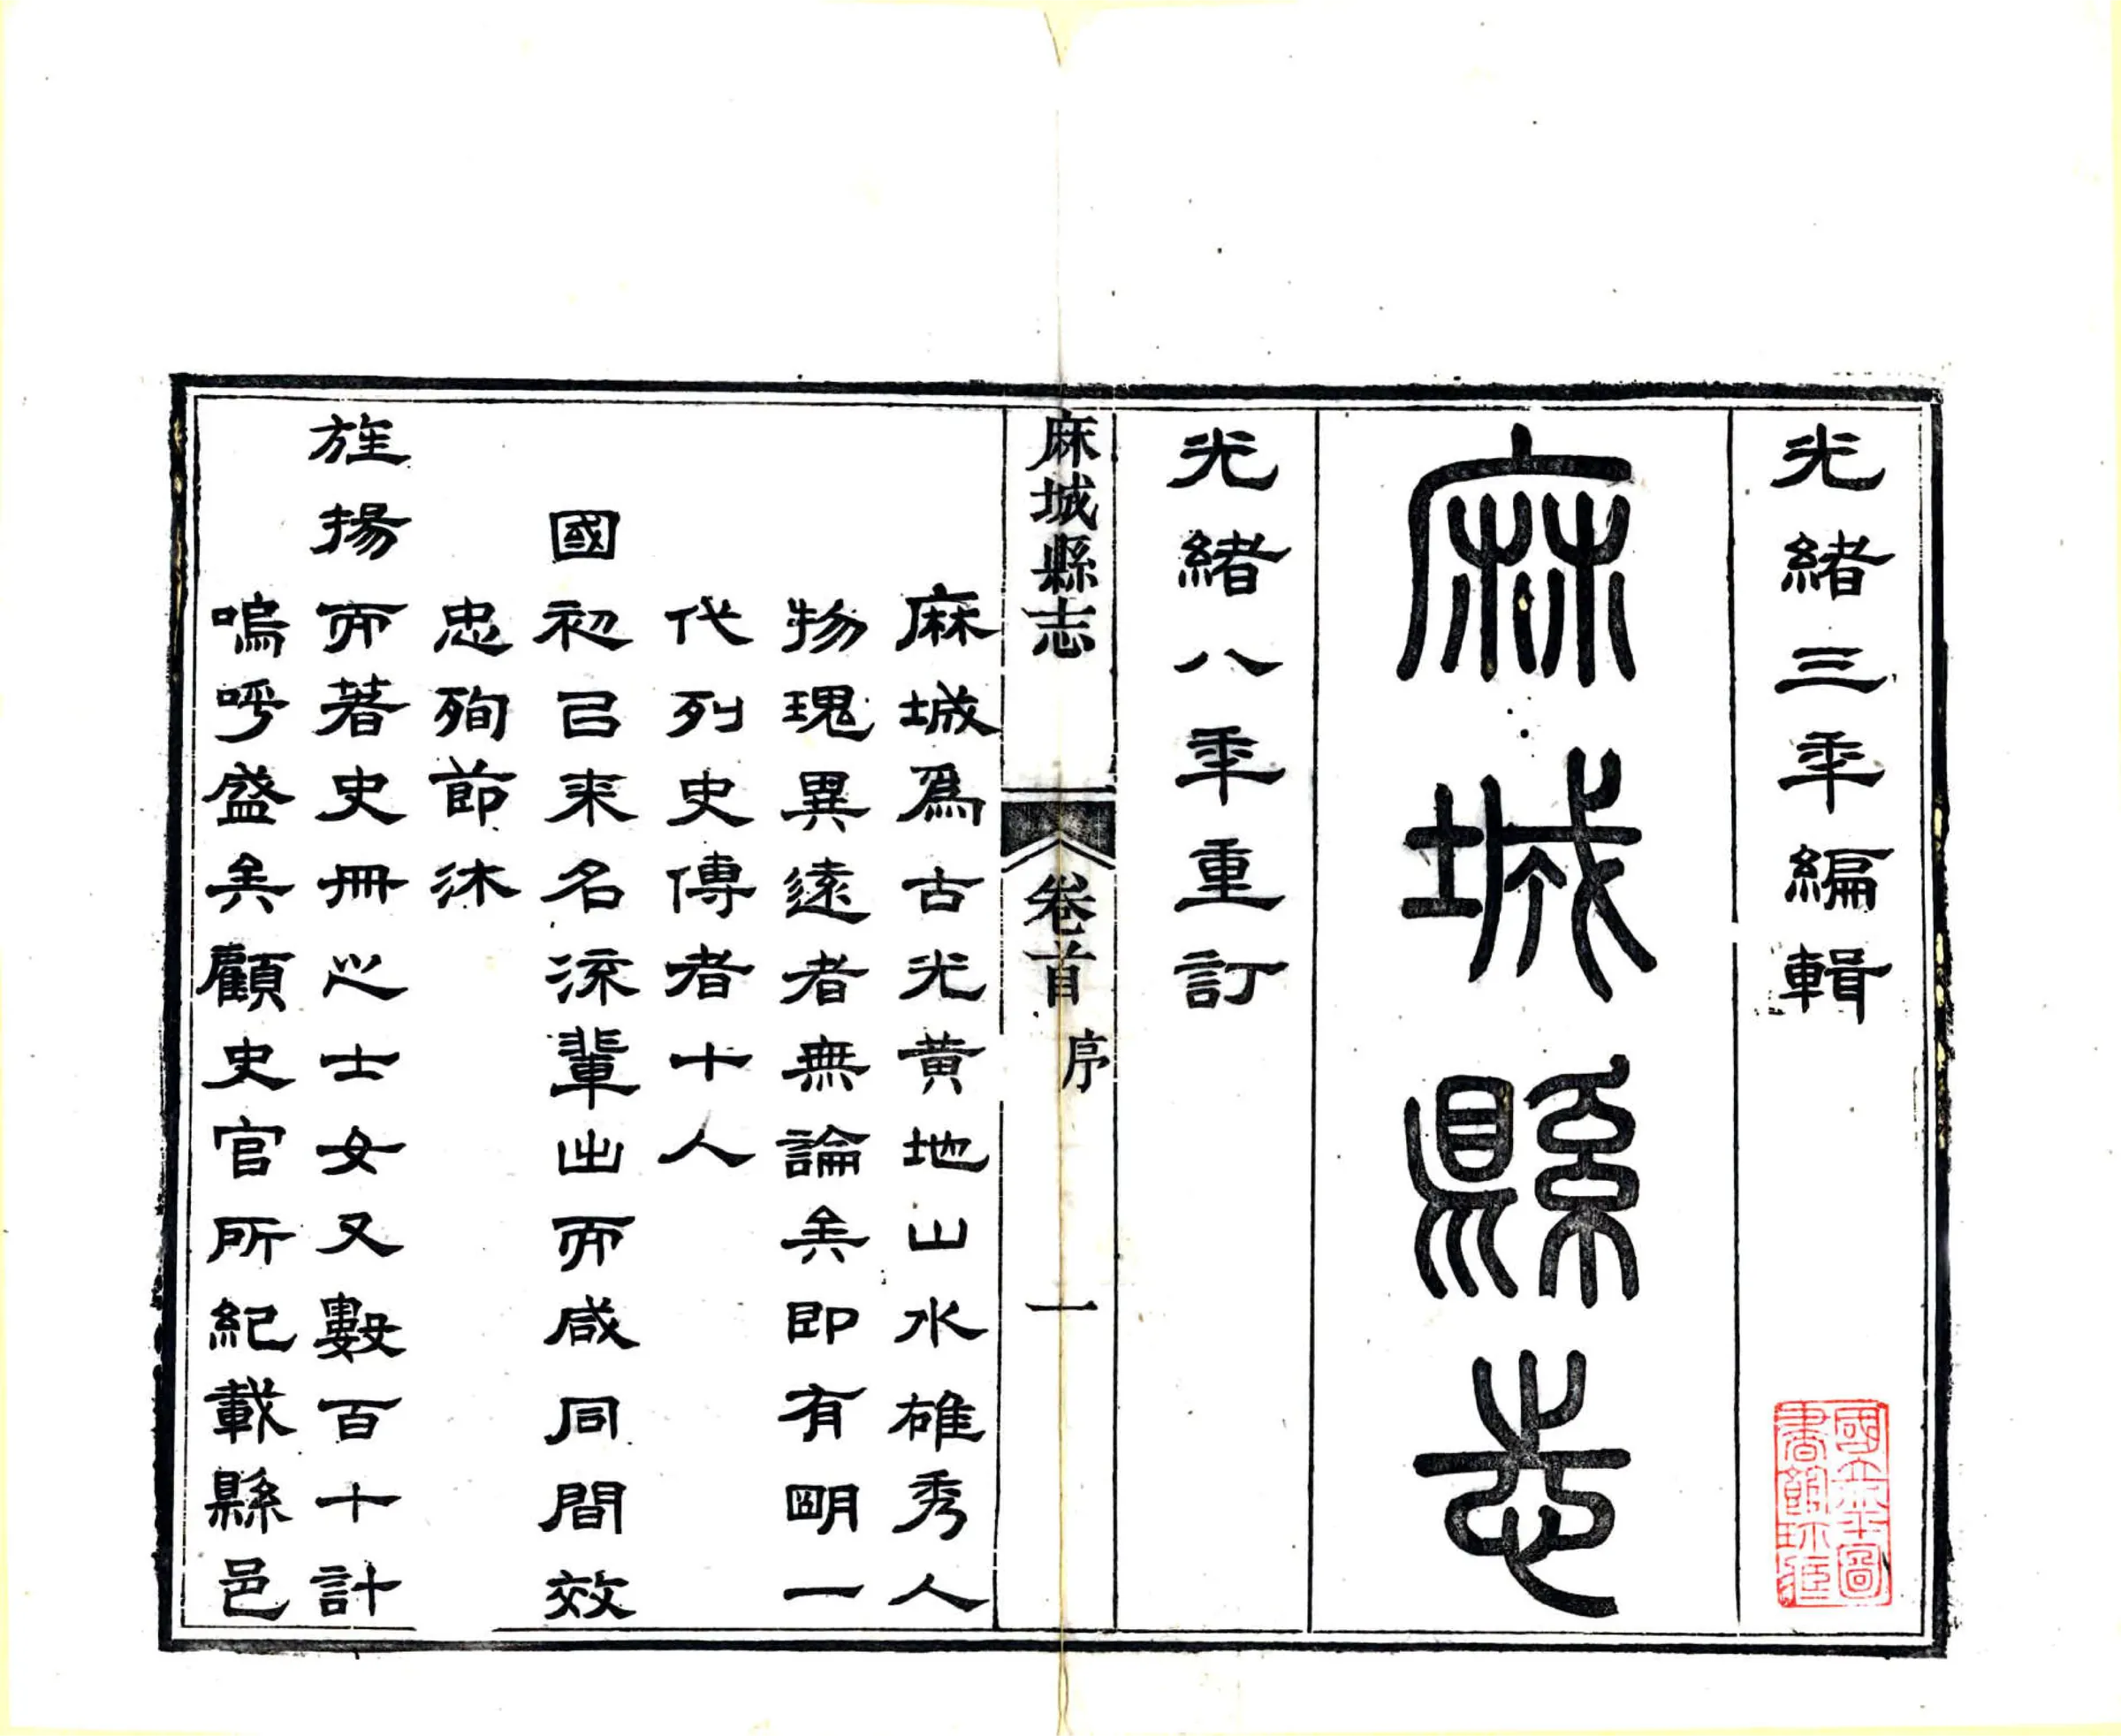 光緒三年編輯
麻城縣志
光緒八年重訂
國立北平圖
書館珍藏
麻城縣志 卷首 序 一
麻城爲古光黃地山水雄秀人
物瑰異遠者無論矣即有明一
代列史傳者十人
國初已來名流輩出而咸同間效
忠殉節沐
旌揚而著史冊之士女又數百十計
嗚呼盛矣顧史官所紀載縣邑